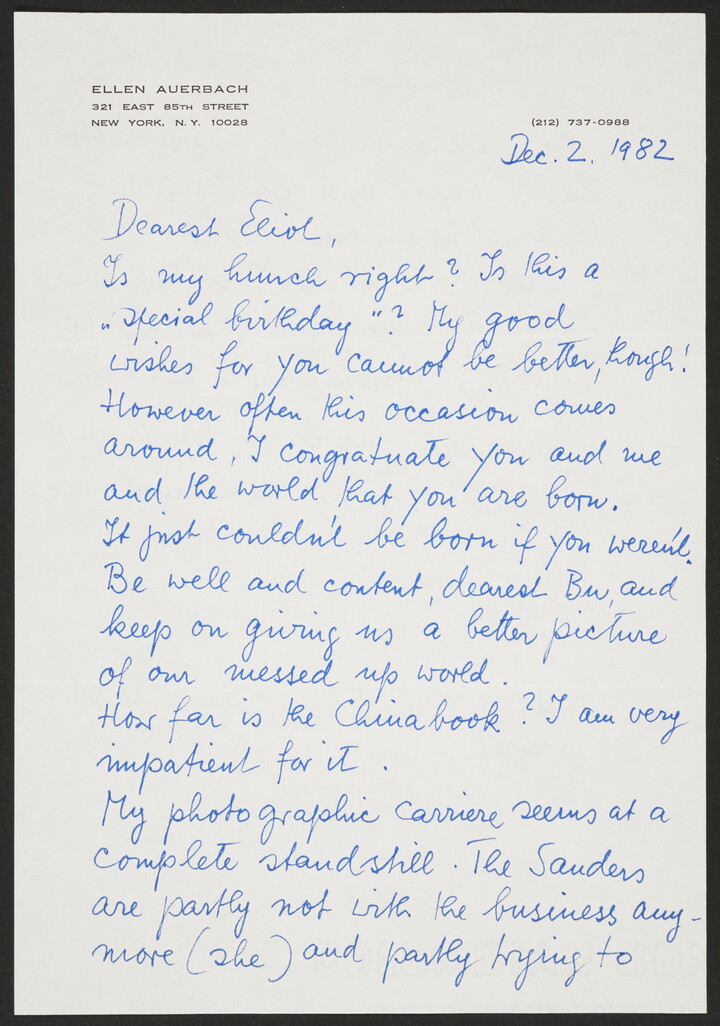 ELLEN AUERBACH
321 EAST 85TH STREET
NEW YORK, N.Y. 10028
(212) 737-0988
Dec. 2. 1982
Dearest Eliot,
Is my hunch right? Is this a
„special birthday“? My good
wishes for you cannot be better, though!
However often this occasion comes
around, I congratuate you and me
and the world that you are born.
It just couldn't be born if you weren't.
Be well and content, dearest Bu, and
keep on giving us a better picture
of our messed up world.
How far is the China book? I am very
impatient for it.
My photographic carriere seems at a
complete standstill. The Sanders
are partly not with the business any-
more (she) and partly trying to